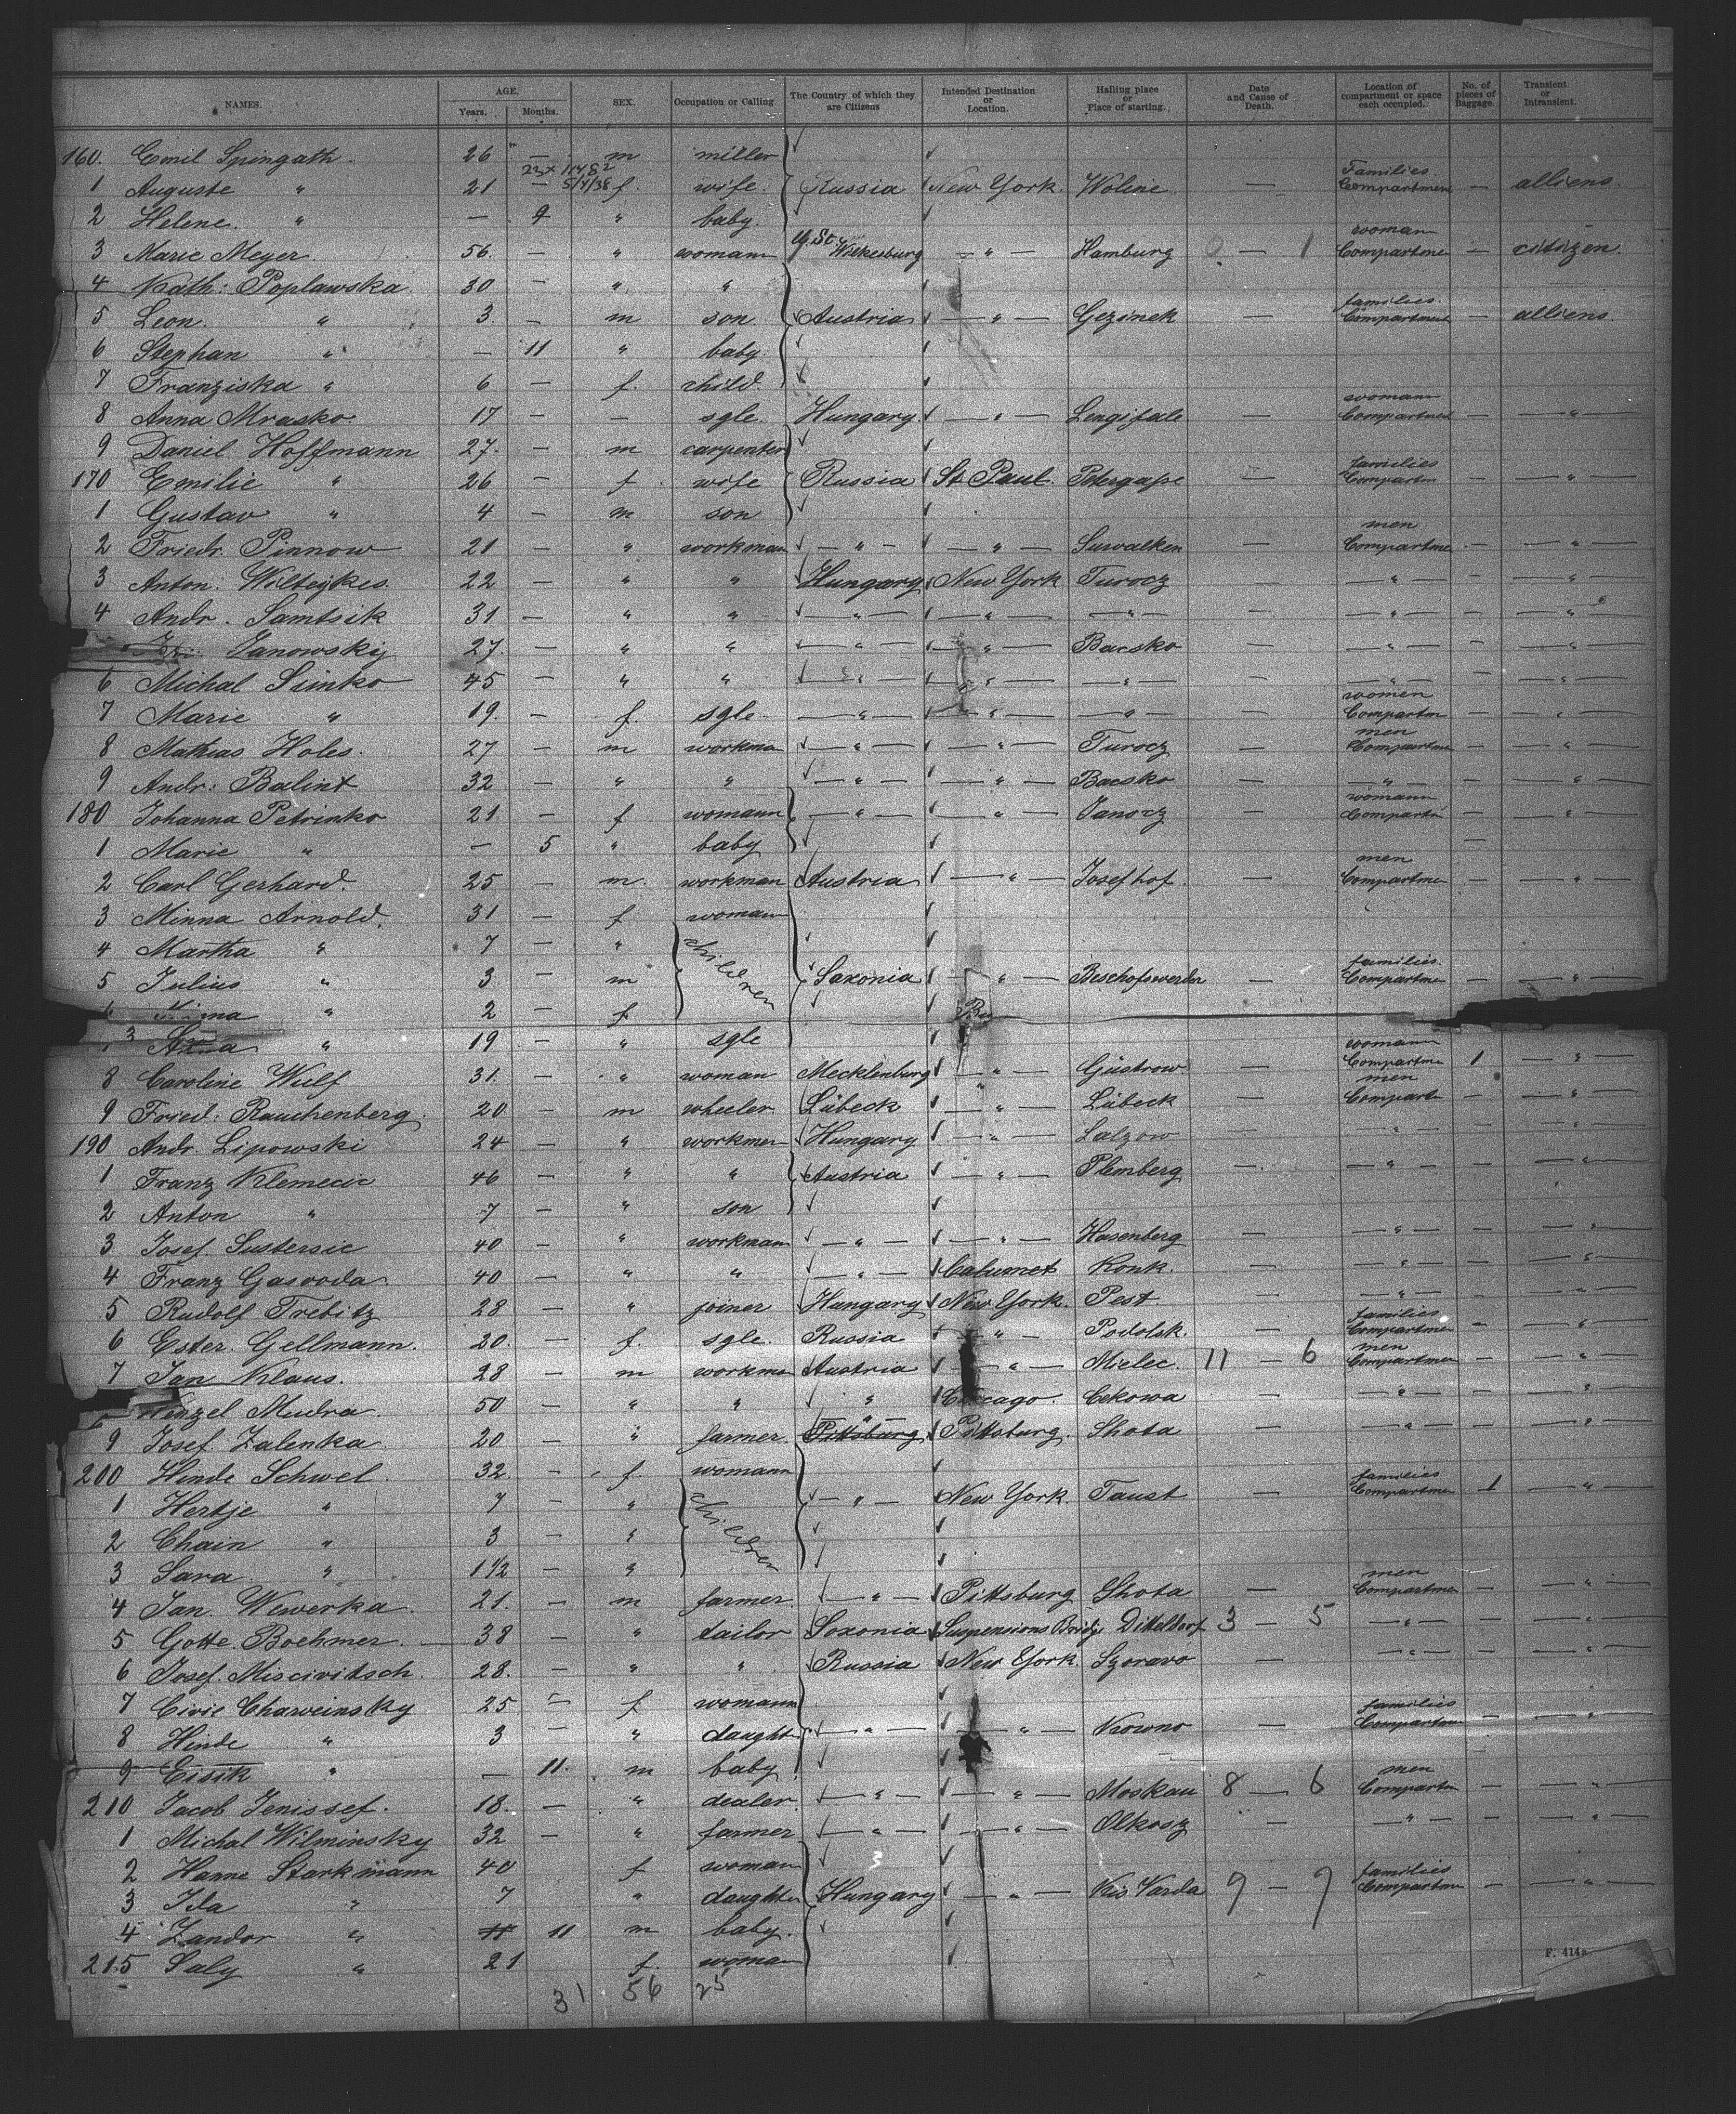 NAMES. AGE. Years. Months. SEX. Occupation or Calling The Country of which they are Citizens Intended Destination or Location. Hailing place or Place of starting. Date and Cause of Death. Location of compartment or space each occupied. No. of pieces of Baggage. Transient or Intransient.
160. Emil Spingath 26 — m miller
1 Auguste " 21 — f. wife. Russia New York. Woline — Families Compartment — alliens.
2 Helene. " — 9 " baby.
3 Marie Meyer. 56. — " womann U. St. Wilkesburg — " — Hamburg 0 — 1 woman Compartme — citizen.
4 Kath: Poplawska 30 — " "
5 Leon. " 3. — m son Austria — " — Gezinek — families. Compartment — alliens
6 Stephan " — 11 " baby.
7 Franziska " 6 — f. child.
8 Anna Mrasko. 17 — — sgle. Hungary. — " — Lengifale — woman Compartment — "
9 Daniel Hoffmann 27. — m carpenter
170 Emilie " 26 — f. wife Russia St. Paul. Petergasse — families Compartm — — " —
1 Gustav " 4 — m son
2 Friedr. Pinnow 21 — " workman — " — — " — Suwalken — men Compartme — — " —
3 Anton. Wilteykes 22 — " " Hungary New York Turocz — — " — — — " —
4 Andr. Samtsik 31 — " " — " — — " — — " — — — " — — — " —
Janowskij 27. — " " — " — — " — Bacsko — — " — — — " —
6 Michal Simko 45 — " " — " — — " — — " — — — " — — — " —
7 Marie " 19. — f. sgle. — " — — " — — " — — women Compartm — — " —
8 Mathias Holes. 27 — m workman — " — — " — Turocz — men Compartme — — " —
9 Andr: Balint 32 — " " — " — — " — Bacsko — — " — — — " —
180 Johanna Petrinko 21 — f womann — " — — " — Janocz — womann Compartm — " —
1 Marie " — 5 " baby —
2 Carl Gerhard. 25 — m. workman Austria — " — Josefhof. — men Compartme — — " —
3 Minna Arnold. 31 — f womann
4 Martha " 7 — " children
5 Julius " 3 — m Saxonia — " — Bischofswerder — families. Compartme — — " —
6 " 2 — f
" 19 — " sgle
8 Caroline Wulf 31. — " woman Mecklenburg — " — Güstrow — womann Compartme 1 — " —
9 Fried: Rauchenberg. 20 — m wheeler Lübeck — " — Lübeck — men Compartm — — " —
190 Andr. Lipowski 24 — " workmen Hungary — " — Lalzow — — " — — — " —
1 Franz Klemecic 46 — " " Austria — " — Plemberg — — " — — — " —
2 Anton " 7 — " son
3 Josef. Sustersic 40 — " workmann — " — — " — Hasenberg — — " — — — " —
4 Franz Gasvoda 40 — " " — " — Calumet Konk. — — " — — — " —
5 Rudolf Trebitz 28 — " joiner Hungary New York. Pest. — — " — — " —
6 Ester. Gellmann. 20. — f. sgle. Russia — " — Podolsk. — families Compartme — — " —
7 Jan Klaus. 28 — m workman Austria — " — Mielec. 11 — 6 men Compartmen — — " —
Wenzel Mudra. 50 — " " " Chicago. Cekowa — — " — — — " —
9 Josef. Zalenka. 20 — " farmer. — " — Pittsburg. Pittsburg. Shota — — " — — — " —
200 Hinde Schwel. 32. — f. womann
1 Hertje " 7 — " children — " — New York. Taust — families Compartmen 1 — " —
2 Chain " 3 — "
3 Sara. " 1½ — "
4 Jan. Wewerka. 21. — m farmer. — " — Pittsburg Shota — men Compartme — — " —
5 Gotte. Boehmer. 38 — " tailor Saxonia. Suspensions Bridge Ditteldorf 3 — 5 — " — — — " —
6 Josef. Miscivitsch. 28. — " " Russia New York. Szoravo — — " — — — " —
7 Civie Charweinsky 25 — f. womann
8 Hinde " 3 — " daughter — " — — " — Kowno — families Compartm — — " —
9 Eisik " — 11. m baby.
210 Jacob Jenissef. 18. — " dealer. — " — — " — Moskau 8 — 6 men Compartm — — " —
1 Michal Wilminsky 32 — " farmer — " — — " — Olkosz — — " — — — " —
2 Hanne Starkmann 40 f woman 3
3 Ida " 7 " daughter Hungary — " — Kis Varda 9 — 9 families Compartme — — " —
4 Zandor " 11 m baby.
215 Saly " 21 f. woman
F. 414
31 56 25